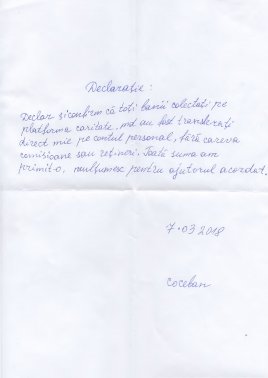 Declarație:
Declar și confirm că toți banii colectați pe
platforma caritate.md au fost transferați
direct mie pe contul personal, fără careva
comisioane sau rețineri. Toată suma am
primit-o, mulțumesc pentru ajutorul acordat.
7.03 2018